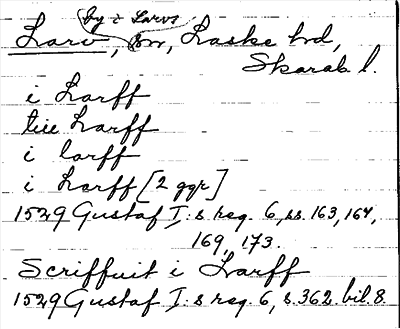 by i Larvs
Larv, sn, Laske hd,
Skarab. l.
i Larff
till Larff
i larff
i Larff [2 ggr]
1529 Gustaf I:s reg. 6, ss. 163, 164,
169, 173.
Scriffuit i Larff
1529 Gustaf I:s reg. 6, s. 362. bil. 8